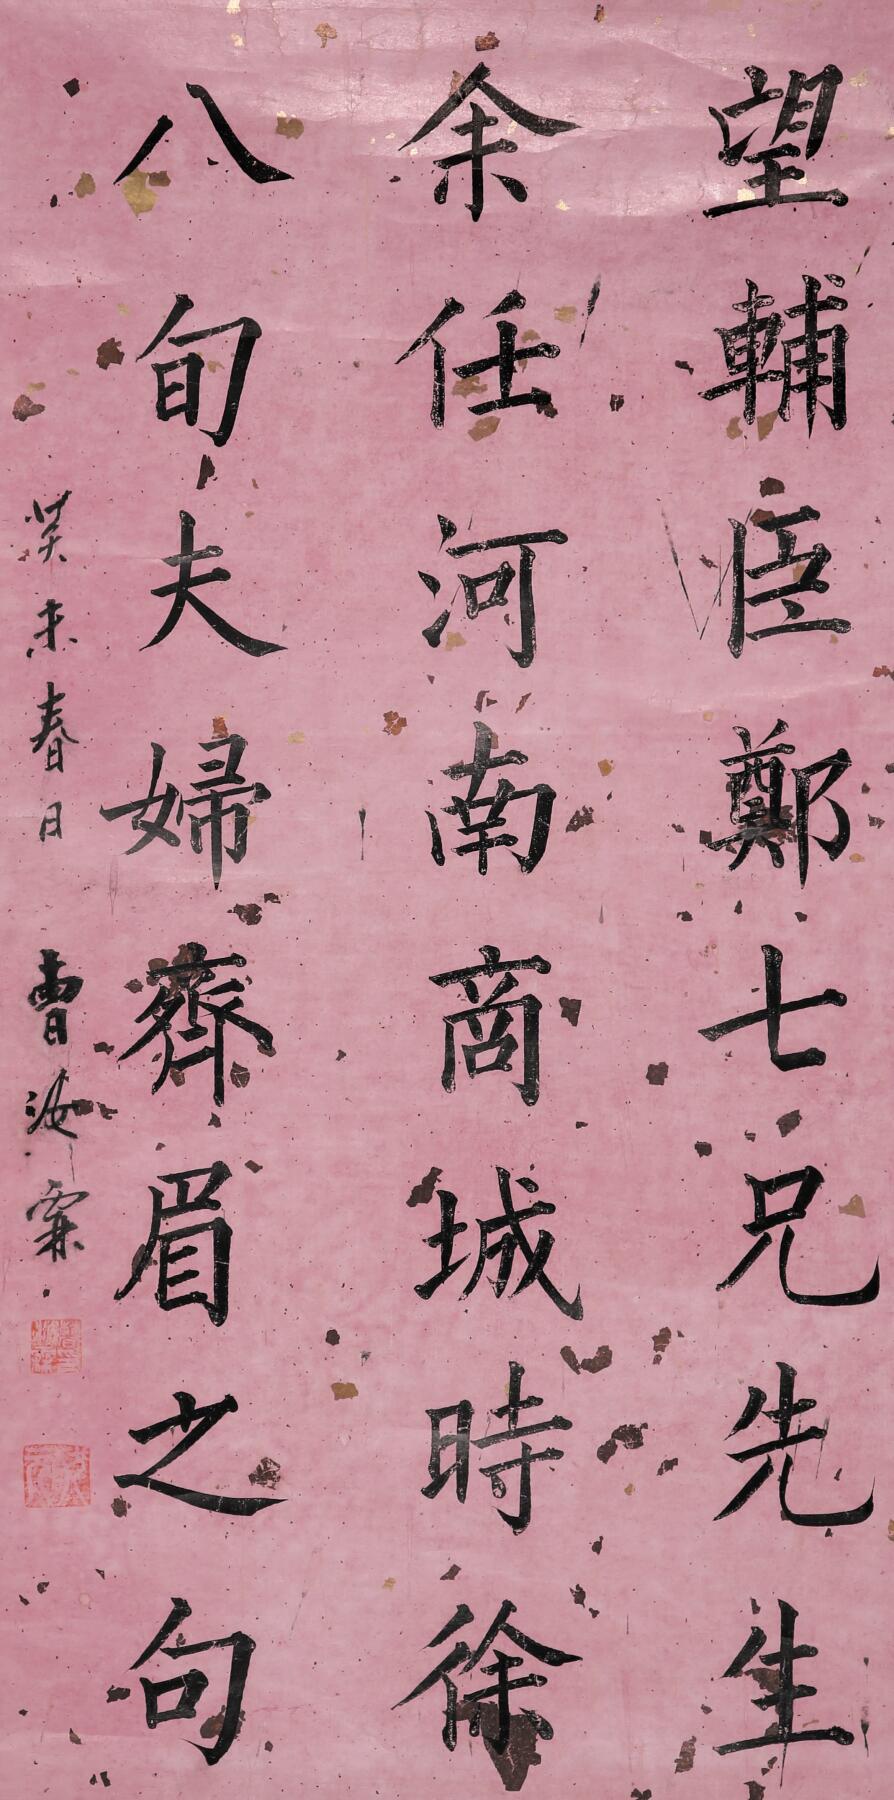 望輔臣鄭七兄先生
余任河南商城時徐
八旬夫婦齊眉之句
癸未春日 曹汝霖